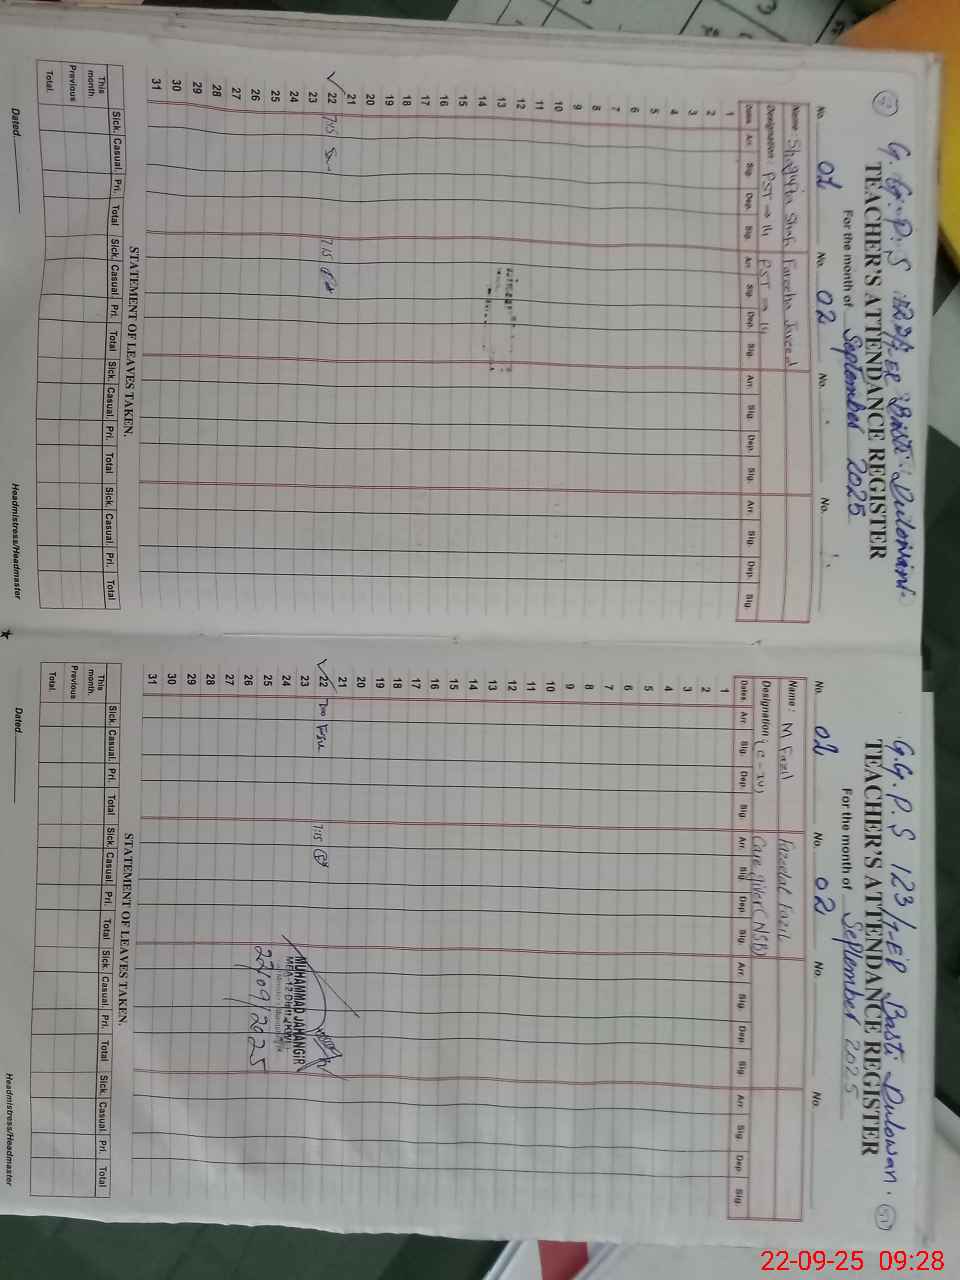 G.G.P.S 123/7-ER Basti Dulowan.
TEACHER'S ATTENDANCE REGISTER
For the month of September 2025
No. 01 No. 02 No. No.
Name: Shagufta Shafi Fareeha Javeed
Designation: PST → 14 PST → 14
Dates Arr. Sig. Dep. Sig. Arr. Sig. Dep. Sig. Arr. Sig. Dep. Sig. Arr. Sig. Dep. Sig.
1
2
3
4
5
6
7
8
9
10
11
12
13
14
15
16
17
18
19
20
21
22 7:15 7:15
23
24
25
26
27
28
29
30
31
STATEMENT OF LEAVES TAKEN.
Sick. Casual. Pri. Total Sick. Casual. Pri. Total Sick. Casual. Pri. Total Sick. Casual. Pri. Total
This month.
Previous
Total.
Dated
Headmistress/Headmaster
G.G.P.S 123/7-ER Basti Dulowan.
TEACHER'S ATTENDANCE REGISTER
For the month of September 2025
No. 02 No. 02 No. No.
Name: M Fazil Fazzdal Fazil
Designation (C-IV) Care giver (NSB)
Dates Arr. Sig. Dep. Sig. Arr. Sig. Dep. Sig. Arr. Sig. Dep. Sig. Arr. Sig. Dep. Sig.
1
2
3
4
5
6
7
8
9
10
11
12
13
14
15
16
17
18
19
20
21
22 7:00 7:15
23
24
25
26
27
28
29
30
31
MUHAMMAD JAHANGIR
MEA-12
22/09/2025
STATEMENT OF LEAVES TAKEN.
Sick. Casual. Pri. Total Sick. Casual. Pri. Total Sick. Casual. Pri. Total Sick. Casual. Pri. Total
This month.
Previous
Total.
Dated
Headmistress/Headmaster
22-09-25 09:28